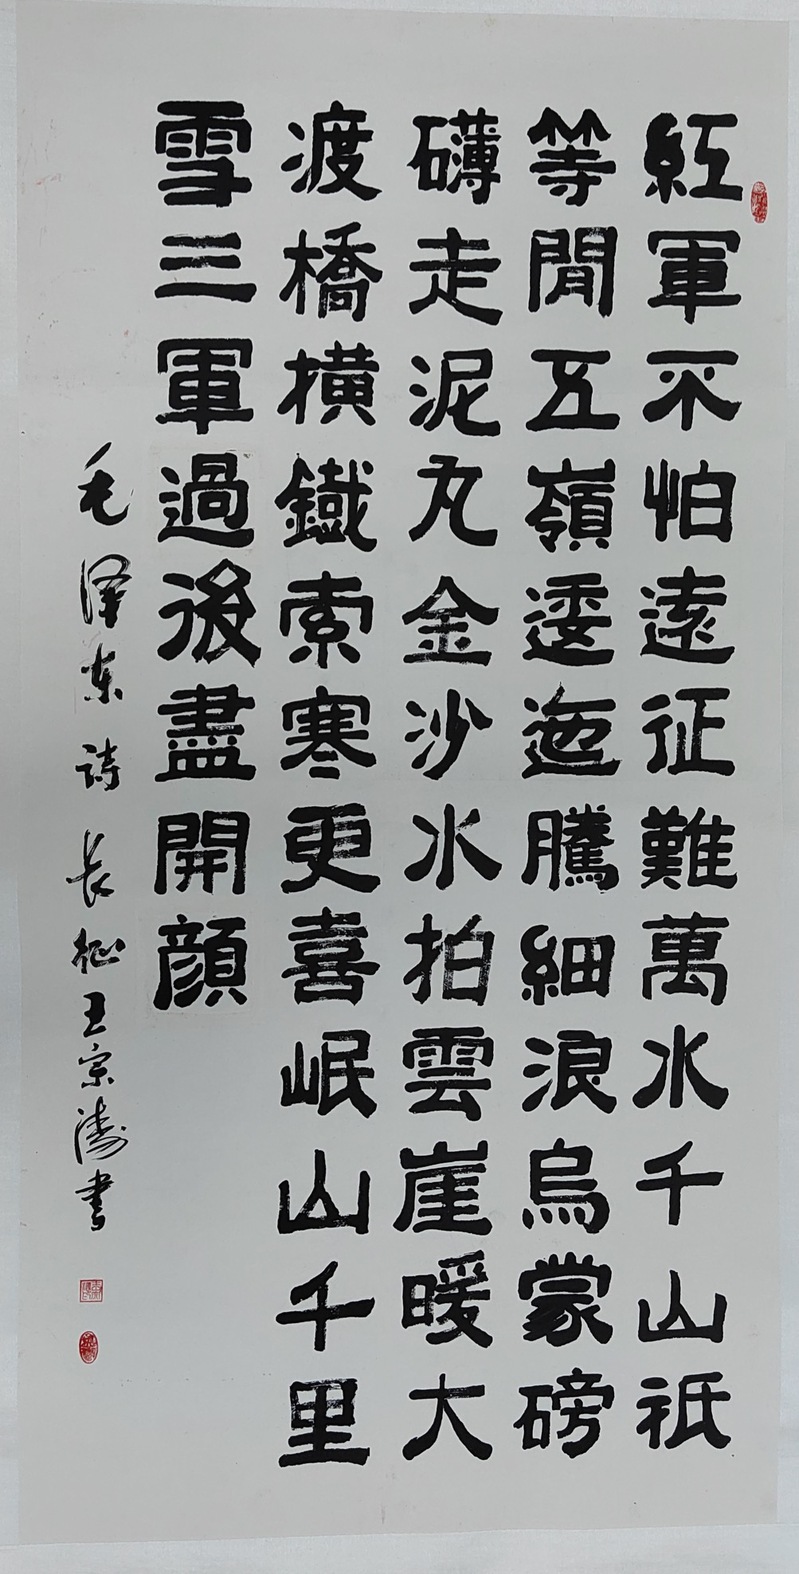 紅軍不怕遠征難萬水千山祇
等閒五嶺逶迤騰細浪烏蒙磅
礴走泥丸金沙水拍雲崖暖大
渡橋橫鐵索寒更喜岷山千里
雪三軍過後盡開顔
毛泽东诗长征王宗涛书